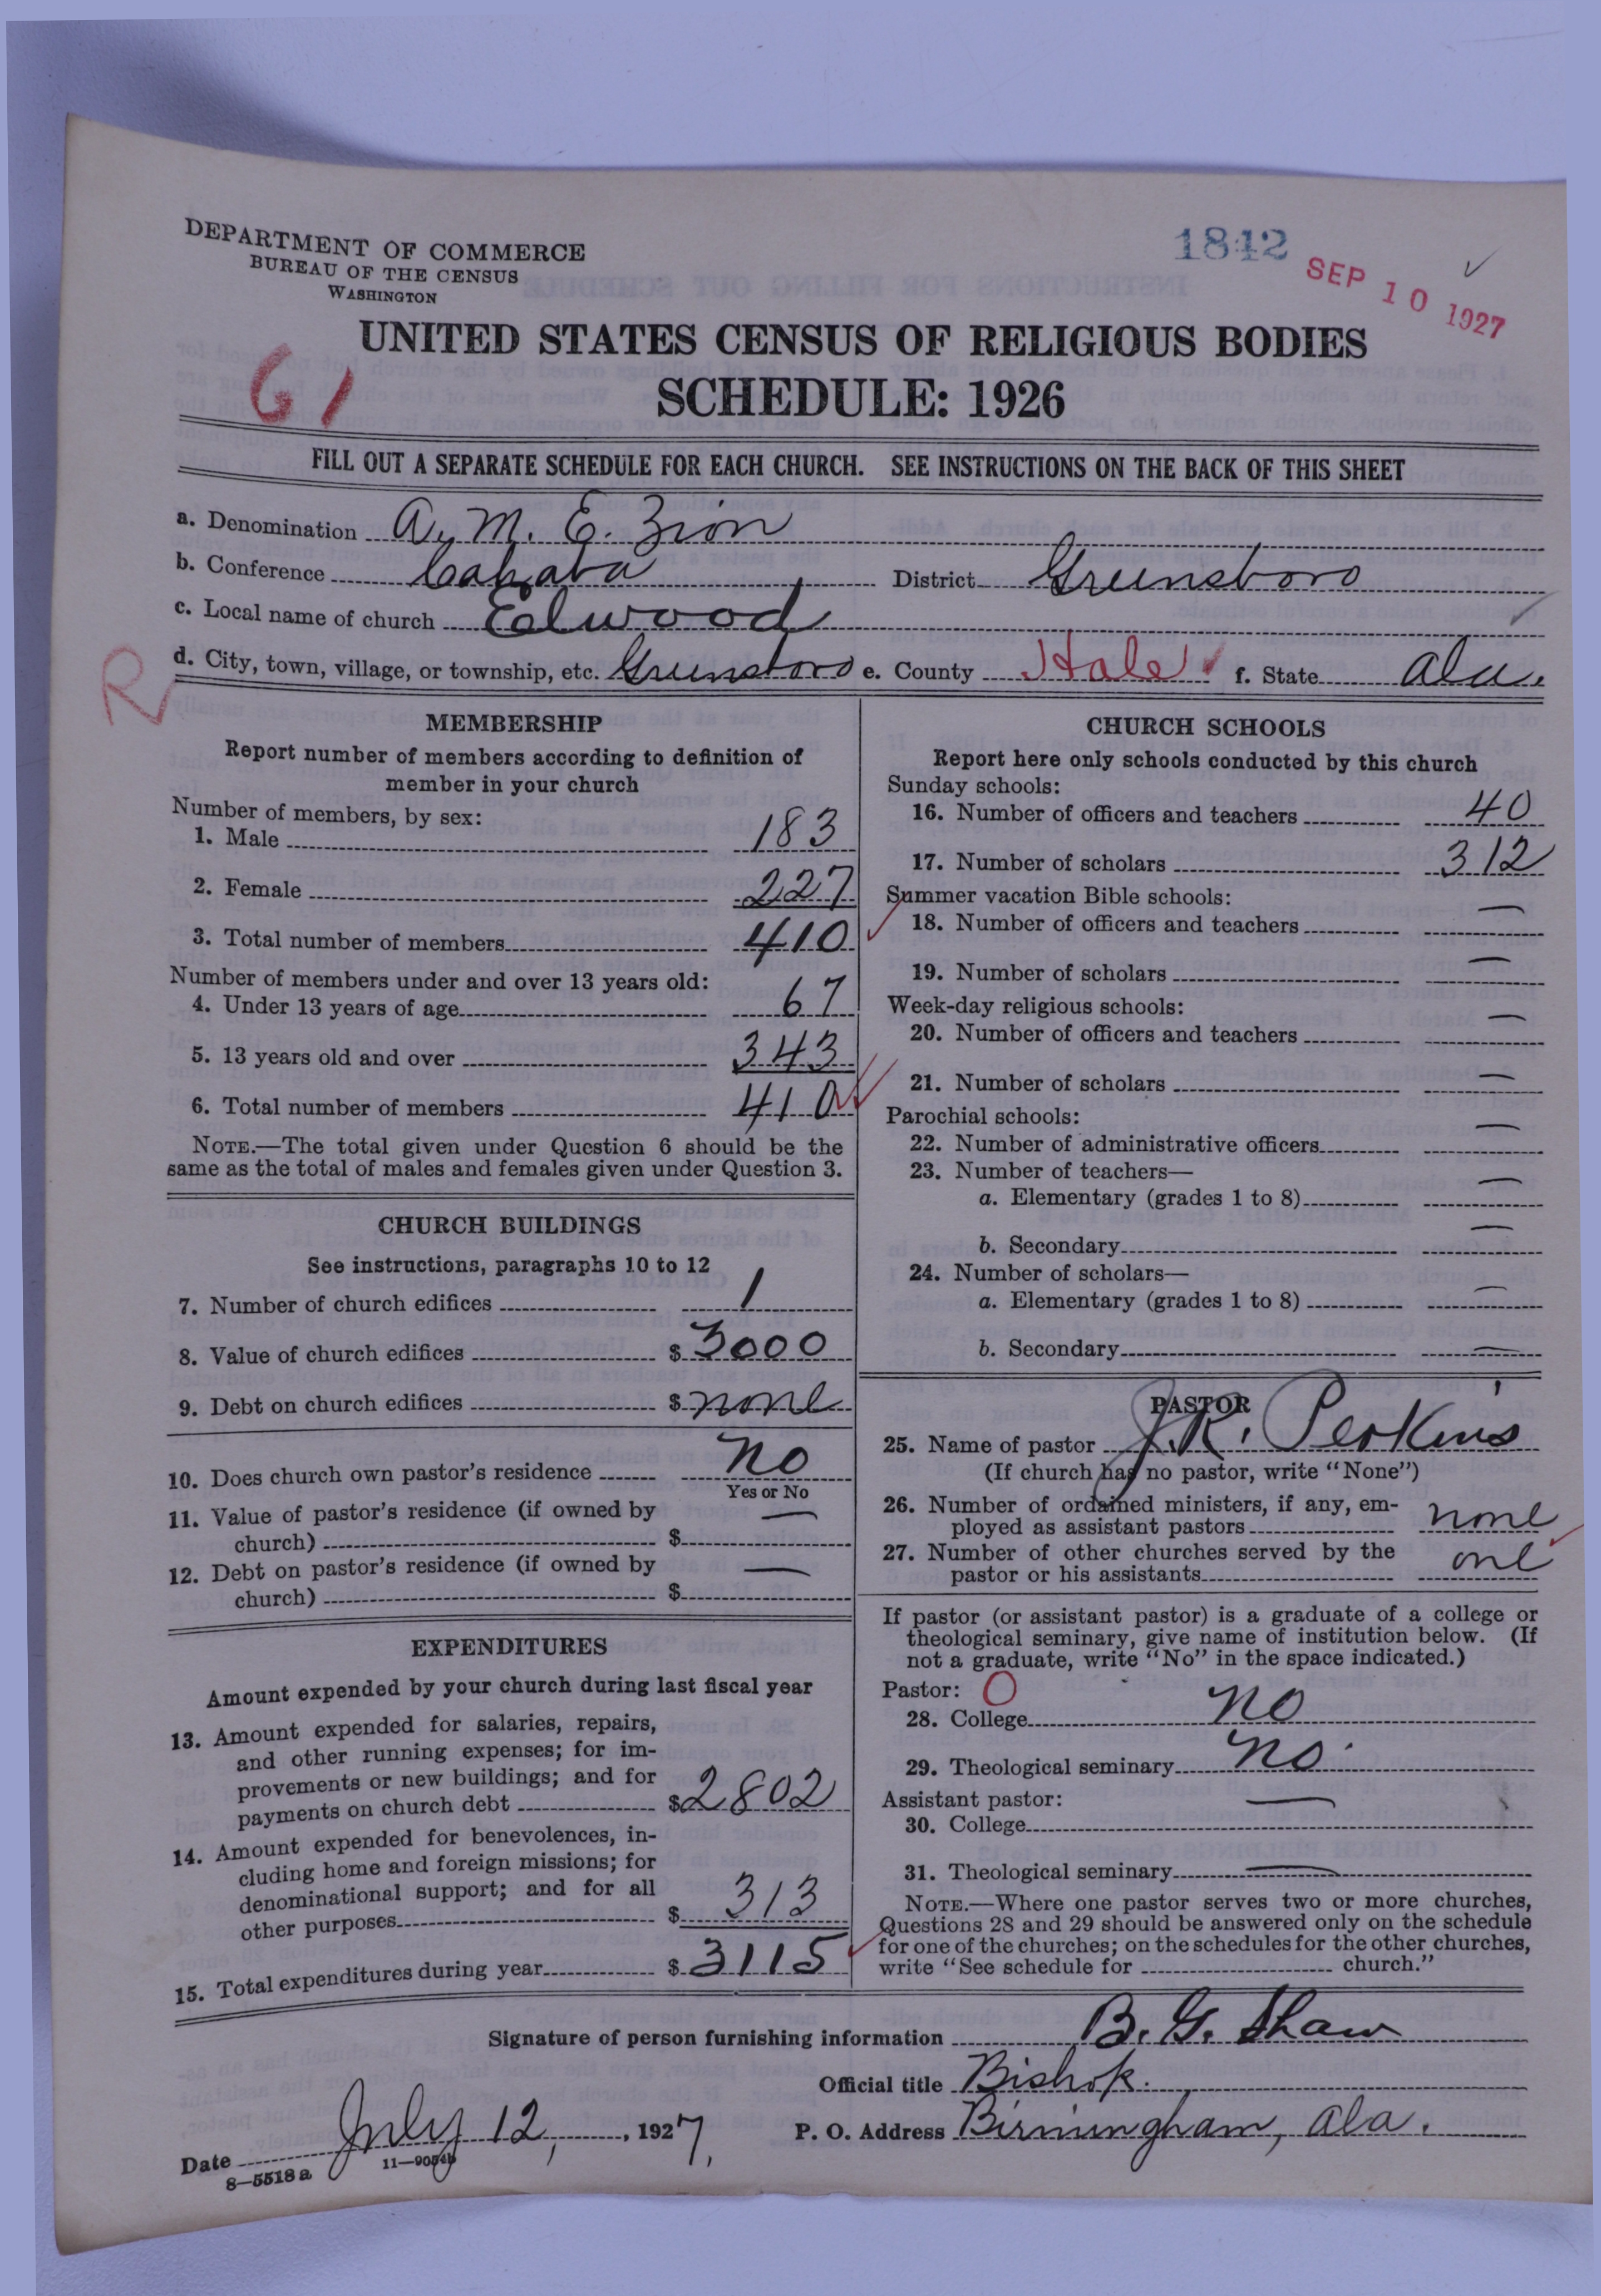 DEPARTMENT OF COMMERCE
BUREAU OF THE CENSUS
WASHINGTON
1842
SEP 10 1927
UNITED STATES CENSUS OF RELIGIOUS BODIES
SCHEDULE: 1926
61
FILL OUT A SEPARATE SCHEDULE FOR EACH CHURCH. SEE INSTRUCTIONS ON THE BACK OF THIS SHEET
a. Denomination A. M. E. Zion
b. Conference Cahaba District Greensboro
c. Local name of church Elwood
d. City, town, village, or township, etc. Greensboro e. County Hale f. State Ala.
R
MEMBERSHIP
Report number of members according to definition of
member in your church
Number of members, by sex:
1. Male 183
2. Female 227
3. Total number of members 410
Number of members under and over 13 years old:
4. Under 13 years of age 67
5. 13 years old and over 343
6. Total number of members 410
NOTE.—The total given under Question 6 should be the
same as the total of males and females given under Question 3.
CHURCH BUILDINGS
See instructions, paragraphs 10 to 12
7. Number of church edifices 1
8. Value of church edifices $ 3000
9. Debt on church edifices $ none
10. Does church own pastor's residence no
Yes or No
11. Value of pastor's residence (if owned by
church) $ —
12. Debt on pastor's residence (if owned by
church) $ —
EXPENDITURES
Amount expended by your church during last fiscal year
13. Amount expended for salaries, repairs,
and other running expenses; for im-
provements or new buildings; and for
payments on church debt $ 2802
14. Amount expended for benevolences, in-
cluding home and foreign missions; for
denominational support; and for all
other purposes $ 313
15. Total expenditures during year $ 3115
CHURCH SCHOOLS
Report here only schools conducted by this church
Sunday schools:
16. Number of officers and teachers 40
17. Number of scholars 312
Summer vacation Bible schools:
18. Number of officers and teachers —
19. Number of scholars —
Week-day religious schools:
20. Number of officers and teachers —
21. Number of scholars —
Parochial schools:
22. Number of administrative officers —
23. Number of teachers—
a. Elementary (grades 1 to 8) —
b. Secondary —
24. Number of scholars—
a. Elementary (grades 1 to 8) —
b. Secondary —
PASTOR
25. Name of pastor J. R. Perkins
(If church has no pastor, write "None")
26. Number of ordained ministers, if any, em-
ployed as assistant pastors none
27. Number of other churches served by the
pastor or his assistants one
If pastor (or assistant pastor) is a graduate of a college or
theological seminary, give name of institution below. (If
not a graduate, write "No" in the space indicated.)
Pastor: O
28. College no
29. Theological seminary no
Assistant pastor:
30. College —
31. Theological seminary —
NOTE.—Where one pastor serves two or more churches,
Questions 28 and 29 should be answered only on the schedule
for one of the churches; on the schedules for the other churches,
write "See schedule for church."
Signature of person furnishing information B. G. Shaw
Official title Bishop.
Date July 12, 1927, P. O. Address Birmingham, Ala.
8—5518 a 11—9054b